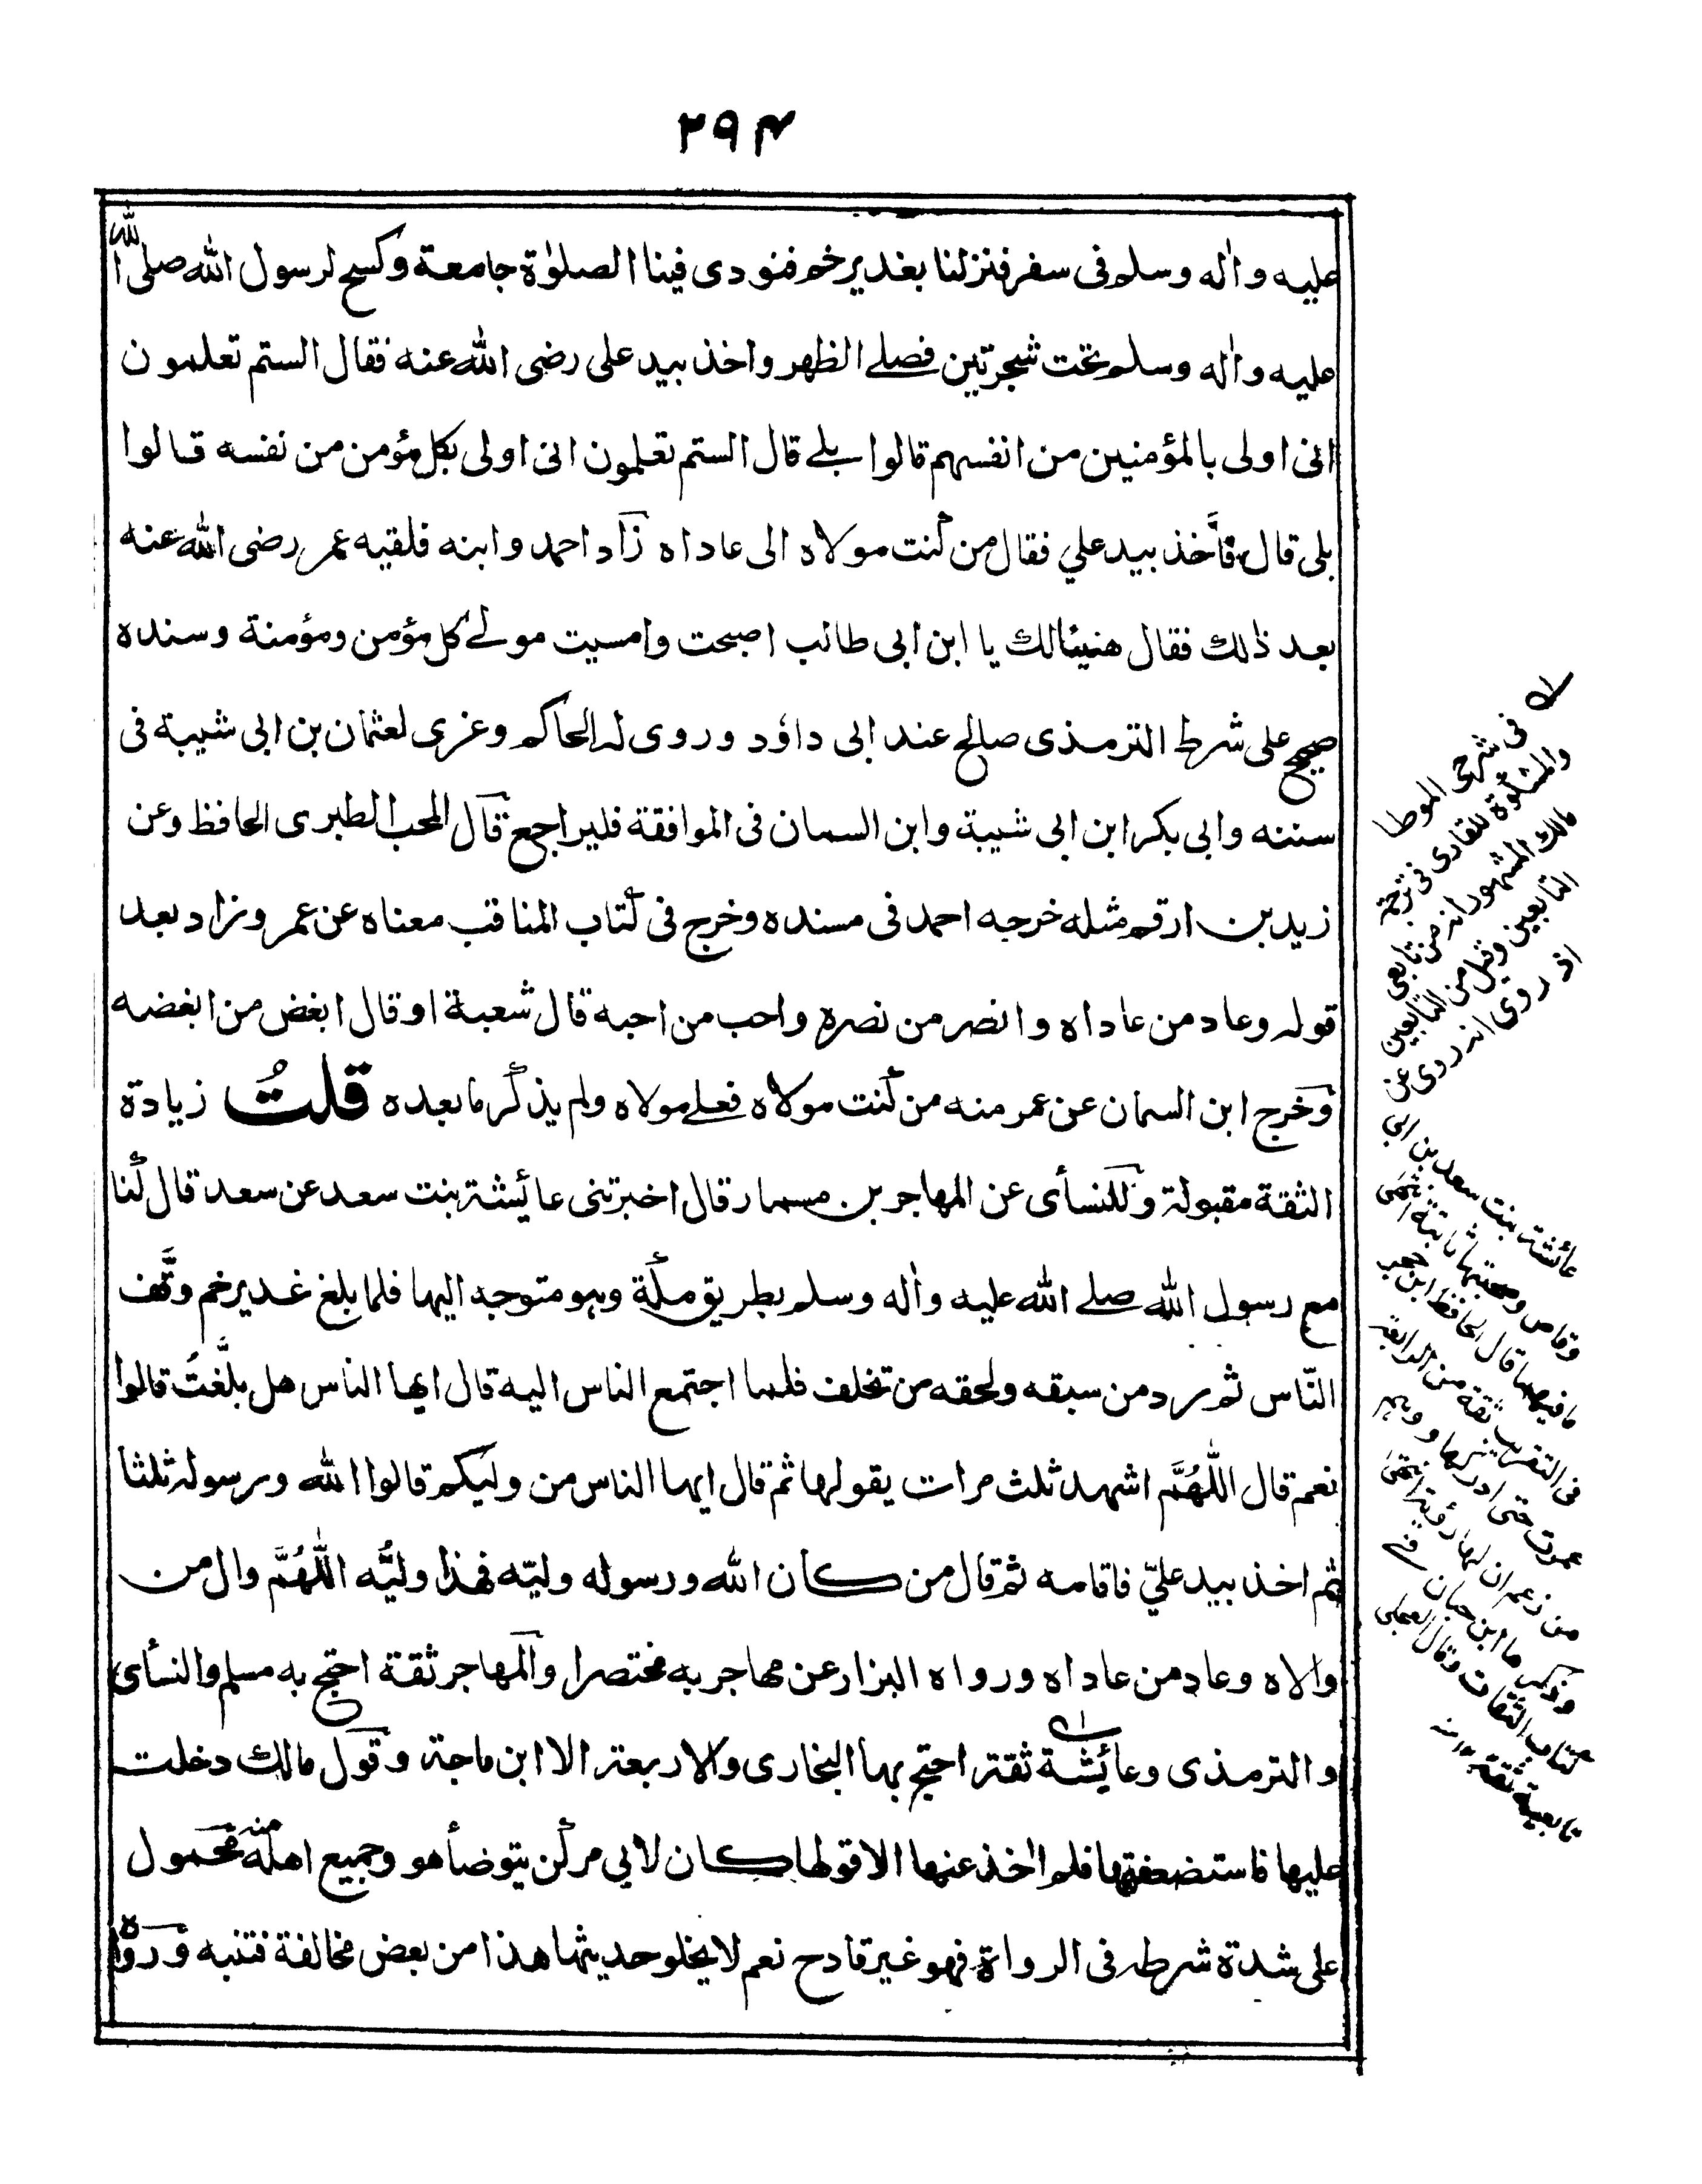 ۲۹۴
عليه واٰله وسلم فى سفر فنزلنا بغدير خم فنودى فينا الصلوٰة جامعة وكسح لرسول الله صلى الله
عليه واٰله وسلم تحت شجرتين فصلے الظهر واخذ بيد على رضى الله عنه فقال الستم تعلمون
انى اولى بالمؤمنين من انفسهم قالوا بلے قال الستم تعلمون انى اولى بكل مؤمن من نفسه قالوا
بلى قال فأخذ بيد علي فقال من كنت مولاه الى عاداه زاد احمد وابنه فلقيه عمر رضى الله عنه
بعد ذٰلك فقال هنيئالك يا ابن ابى طالب اصبحت وامسيت مولے كل مؤمن ومؤمنة وسنده
صحيح على شرط الترمذى صالح عند ابى داؤد وروى له الحاكم وعزى لعثمان بن ابى شيبة فى
سننه وابى بكر ابن ابى شيبة وابن السمان فى الموافقة فليراجع قال المحب الطبرى الحافظ وعن
زيد بن ارقم مثله خرجه احمد فى مسنده وخرج فى كتاب المناقب معناه عن عمر وزاد بعد
قوله وعاد من عاداه وانصر من نصره واحب من احبه قال شعبة او قال ابغض من ابغضه
وخرج ابن السمان عن عمر منه من كنت مولاه فعلے مولاه ولم يذكر ما بعده قلتُ زيادة
الثقة مقبولة وللنسأى عن المهاجر بن مسمار قال اخبرتنى عائيشة بنت سعد عن سعد قال كنا
مع رسول الله صلے الله عليه واٰله وسلم بطريق مكة وهو متوجه اليها فلما بلغ غدير خم وقّف
النّاس ثم رد من سبقه ولحقه من تخلف فلما اجتمع الناس اليه قال ايها الناس هل بلّغتُ قالوا
نعم قال اللّٰهُمَّ اشهد ثلث مرات يقولها ثم قال ايها الناس من وليكم قالوا الله ورسوله ثلثا
ثم اخذ بيد عليّ فاقامه ثم قال من كان الله ورسوله وليّه فهذا وليُّه اللّٰهُمَّ وال من
والاه وعاد من عاداه ورواه البزار عن مهاجر به مختصرا والمهاجر ثقة احتج به مسلم والنسأى
والترمذى وعائيشة ثقة احتج بها البخارى والاربعة الا ابن ماجة وقول مالك دخلت
عليها فاستضعفتها فلم اٰخذ عنها الا قولها كان لابي مركن يتوضأ هو وجميع اهله منه محمول
على شدة شرطه فى الرواة فهو غير قادح نعم لا يخلو حديثها هذا من بعض مخالفة فتنبه ورواه
فى شرحى الموطا
والمشكوة للقارى فى ترجمة
مالك المشهور انه من تابعى
التابعين وقيل من التابعين
اذ روى انه روى عن
عائشة بنت سعد بن ابى
وقاص وصحبتها ثابتة انتهى
ما فيهما قال الحافظ ابن حجر
فى التقريب ثقة من الرابعة
عمرت حتى ادركها مالك ووهم
من زعم ان لها رؤية انتهى
وذكرها ابن حبان فى
كتاب الثقات وقال العجلى
تابعية ثقة ۱۲ منه